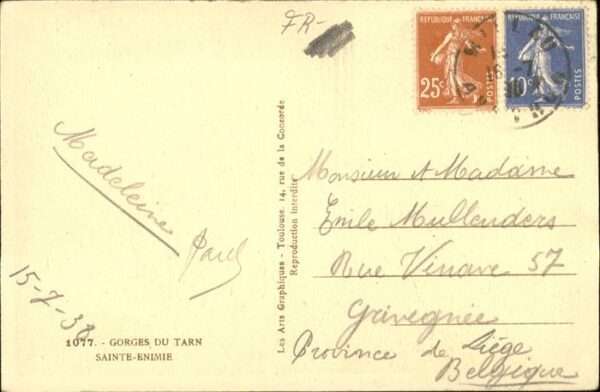 FR-
REPUBLIQUE FRANÇAISE
25c
POSTES
REPUBLIQUE FRANÇAISE
10c
POSTES
Madeleine
Paul
15-7-38
1077. - GORGES DU TARN
SAINTE-ENIMIE
Les Arts Graphiques - Toulouse 14, rue de la Concorde
Reproduction interdite
Monsieur et Madame
Emile Mullenders
Rue Vinave 57
Grivegnée
Province de Liège
Belgique